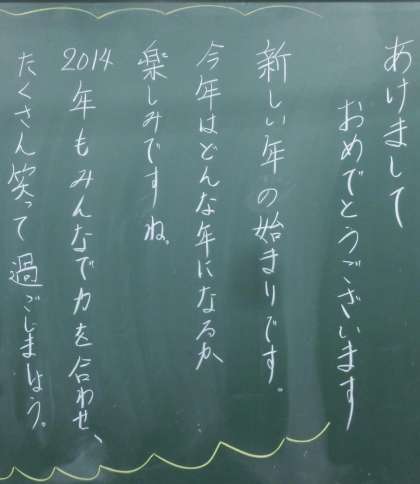 あけまして
おめでとうございます
新しい年の始まりです。
今年はどんな年になるか
楽しみですね。
2014年もみんなで力を合わせ、
たくさん笑って過ごしましょう。